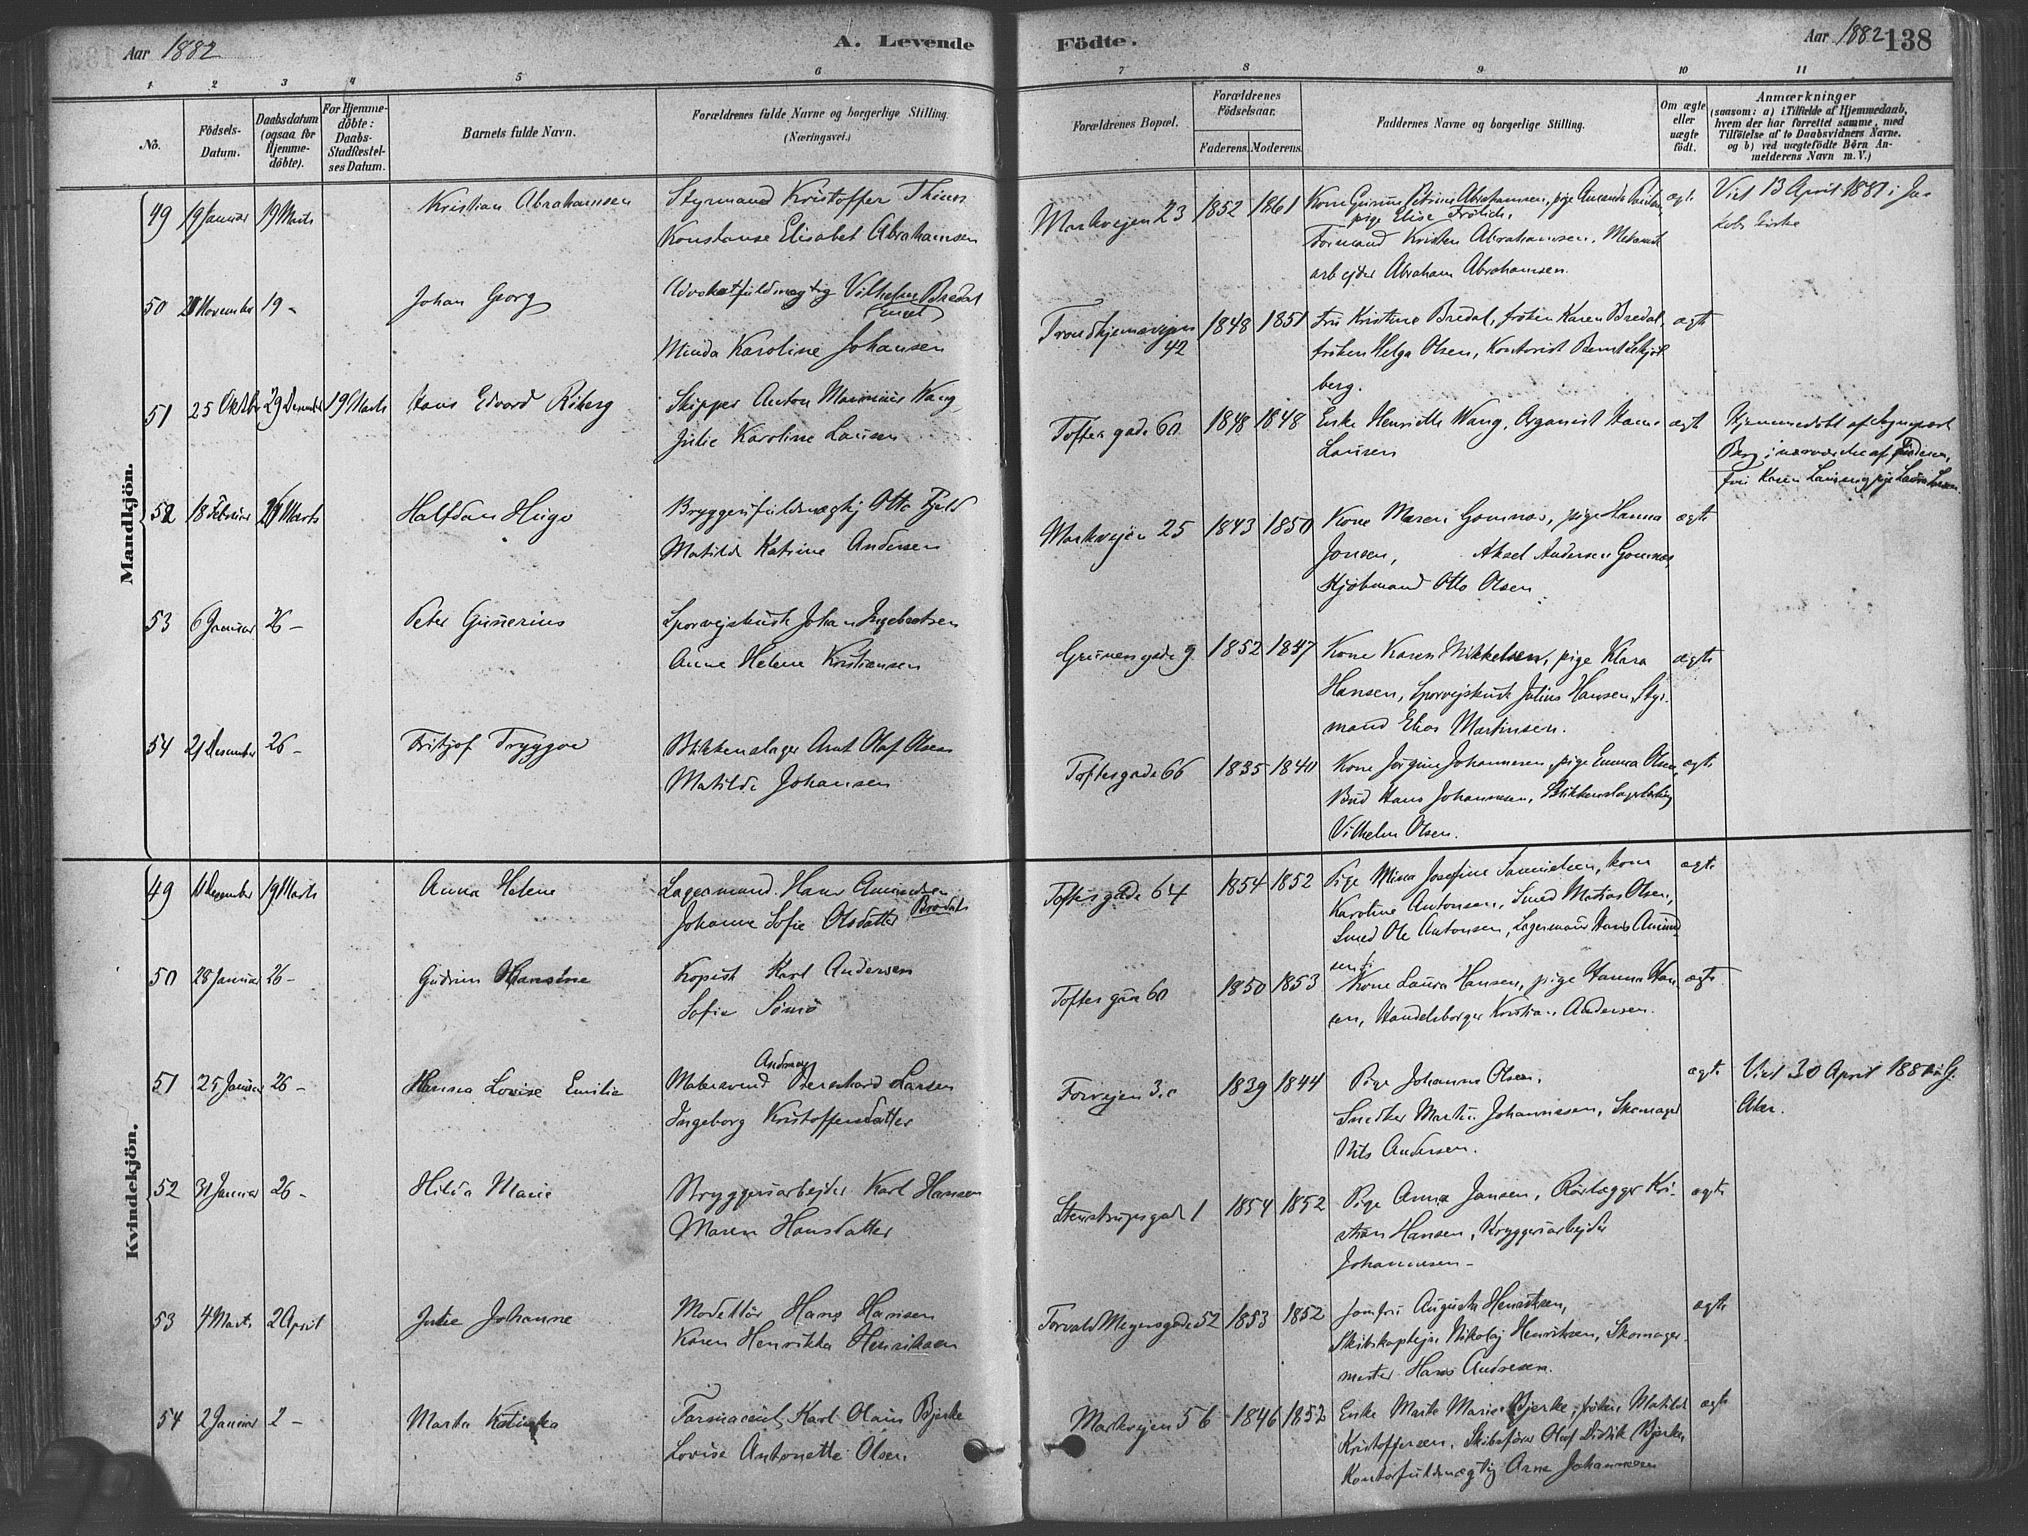 Aar 1882
A. Levende
Födte.
Aar 1882
138
1 2 3 4 5 6 7 8 9 10 11
No.
Födsels-Datum.
Daabsdatum (ogsaa for Hjemme-döbte).
For Hjemme-döbte: Daabs-Stadfæstel-ses Datum.
Barnets fulde Navn.
Forældrenes fulde Navne og borgerlige Stilling. (Næringsvei.)
Forældrenes Bopæl.
Forældrenes Födselsaar.
Faderens. Moderens.
Faddernes Navne og borgerlige Stilling.
Om ægte eller uægte födt.
Anmærkninger
(saasom: a) i Tilfælde af Hjemmedaab, hvem der har forrettet samme, med Tilföielse af to Daabsvidners Navne. og b) ved uægtefödte Börn An-melderens Navn m. V.)
Mandkjön.
49 19 Januar 19 Marts Kristian Abrahamsen
Styrmand Kristoffer
Konstanse Elisabet Abrahamsen
Markvejen 23 1852 1861
Kone Petrine Abrahamsen, pige Amanda
pige Elise Frölich,
Formand Kristen Abrahamsen,
arbejder Abraham Abrahamsen.
ægte
Viet 13 April 1881 i Ja
kobs kirke
50 November 19 - Johan Georg
Advokatfuldmægtig Vilhelm Bredal
Minda Karoline Johansen
Trondhjemsvejen 42 1848 1851
Fru Kristine Bredal, fröken Karen Bredal,
fröken Helga Olsen, Kontorist Bernt
berg.
ægte
51 25 Oktbr 29 Desember 19 Marts Hans Edvard Riberg
Skipper Anton Marinius Wang,
Julie Karoline Lausen
Toftes gade 60 1848 1848
Enke Henriette Wang, Organist Hans
Lausen
ægte
Hjemmedöbt af
Berg i nærværelse af Faderen,
fru Karen
52 18 Februar 26 Marts Halfdan Hugo
Bryggerifuldmægtig Otto
Matilde Katrine Andersen
Markvejen 25 1843 1850
Kone Maren Gomnæs, pige Hanna
Jonsen, Aksel Andersen Gomnæs,
Kjöbmand Otto Olsen.
ægte
53 6 Januar 26 - Peter Gunerius
Sporvejskusk Johan Ingebretsen
Anne Helene Kristiansen
Grünersgade 9 1852 1847
Kone Karen Mikkelsen, pige Klara
Hansen, Sporvejskusk Julius Hansen, Styr-
mand Elias Martinsen.
ægte
54 21 Desember 26 - Fritjof Tryggve
Blikkenslager Arnt Olaf Olsen
Matilde Johansen
Toftesgade 66 1835 1840
Kone Jörgine Johannesen, pige Emma Olsen,
Bud Hans Johannesen, Blikkenslagerlærling
Vilhelm Olsen.
ægte
Kvindekjön.
49 Desember 19 Marts Anna Helene
Lagermand Hans Amundsen
Johanne Sofie Olsdatter
Toftesgade 64 1854 1852
Pige Mina Josefine Samuelsen, kone
Karoline Antonsen, Smed Matias Olsen,
Smed Ole Antonsen, Lagermand Hans Amund-
sen.
ægte
50 28 Januar 26 - Gudrun Hansine
Kopist Karl Andersen
Sofie
Toftes gade 60 1850 1853
Kone Laura Hansen, pige Hanna Han-
sen, Handelsborger Kristian Andersen.
ægte
51 25 Januar 26 - Hanna Lovise Emilie
Malersvend Bernhard Larsen
Ingeborg Kristoffersdatter
3. 1839 1844
Pige Johanne Olsen,
Snedker Martin Johannesen, Skomager
Nils Andersen.
ægte
Viet 30 April
Aker.
52 31 Januar 26 - Hilda Marie
Bryggeriarbejder Karl Hansen
Maren Hansdatter
Stenstrupsgade 1 1854 1852
Pige Anna Jansen, Rörlægger Kri-
stian Hansen, Bryggeriarbejder
Johannesen -
ægte
53 4 Marts 2 April Julie Johanne
Modellör Hans Hansen
Karen Henrikka Henriksen
Torvald Meyersgade 52 1853 1852
Jomfru Augusta Henriksen,
Skibskaptejn Nikolaj Henriksen, Skomager
mester Hans Andresen.
ægte
54 2 Januar 2 - Marta Katinka
Farmaceut Karl Olaus Bjerke
Lovise Antonette Olsen.
Markvejen 56 1846 1852
Enke Marte Marie Bjerke, fröken Matilde
Kristoffersen, Skibsförer Oluf Didrik Bjerke,
Kontorfuldmægtig Arne Johannesen
ægte